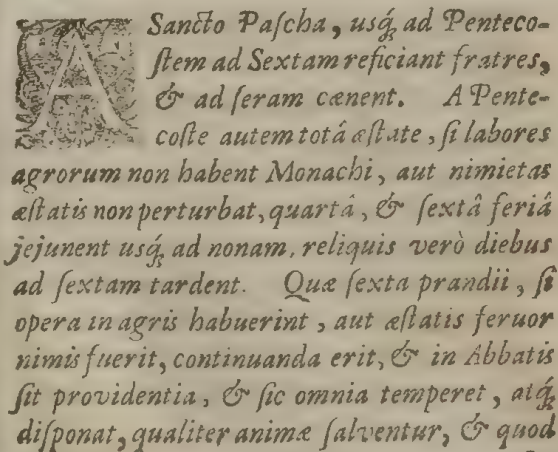 A Sancto Paſcha, usq́; ad Penteco-
ſtem ad Sextam reficiant fratres,
& ad ſeram cænent. A Pente-
coſte autem totâ æſtate, ſi labores
agrorum non habent Monachi, aut nimietas
æſtatis non perturbat, quartâ, & ſextâ feriâ
jejunent usq́; ad nonam, reliquis verò diebus
ad ſextam tardent. Quæ ſexta prandii, ſi
opera in agris habuerint, aut æſtatis feruor
nimis fuerit, continuanda erit, & in Abbatis
ſit providentia, & ſic omnia temperet, atq́;
diſponat, qualiter animæ ſalventur, & quod